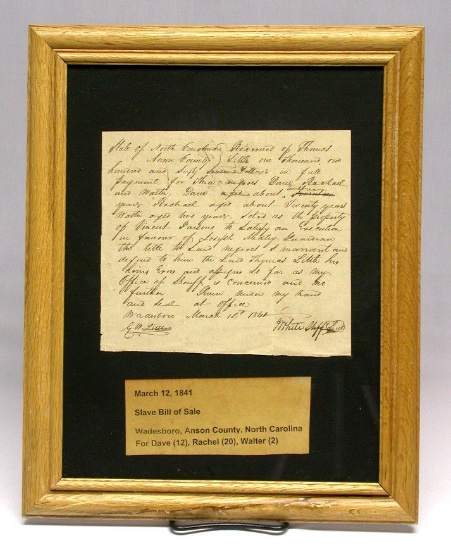 State of North Carolina Received of Thomas
Anson County Little one thousand one
hundred and Sixty Dollars in full
payment for three negroes Dave Rachael
and Walter Dave aged about
years Rachael aged about Twenty years
Walter aged two years Sold as the property
of Vincent Parsons to Satisfy an Execution
in favour of Joseph Guardian
the title to Said negroes I warrant and
defend to him the Said Thomas Little his
heirs Exrs and assigns So far as my
Office of Sheriff is concerned and no
further Given under my hand
and Seal at Office
Wadesboro March 1841
White Shff
March 12, 1841
Slave Bill of Sale
Wadesboro, Anson County, North Carolina
For Dave (12), Rachel (20), Walter (2)